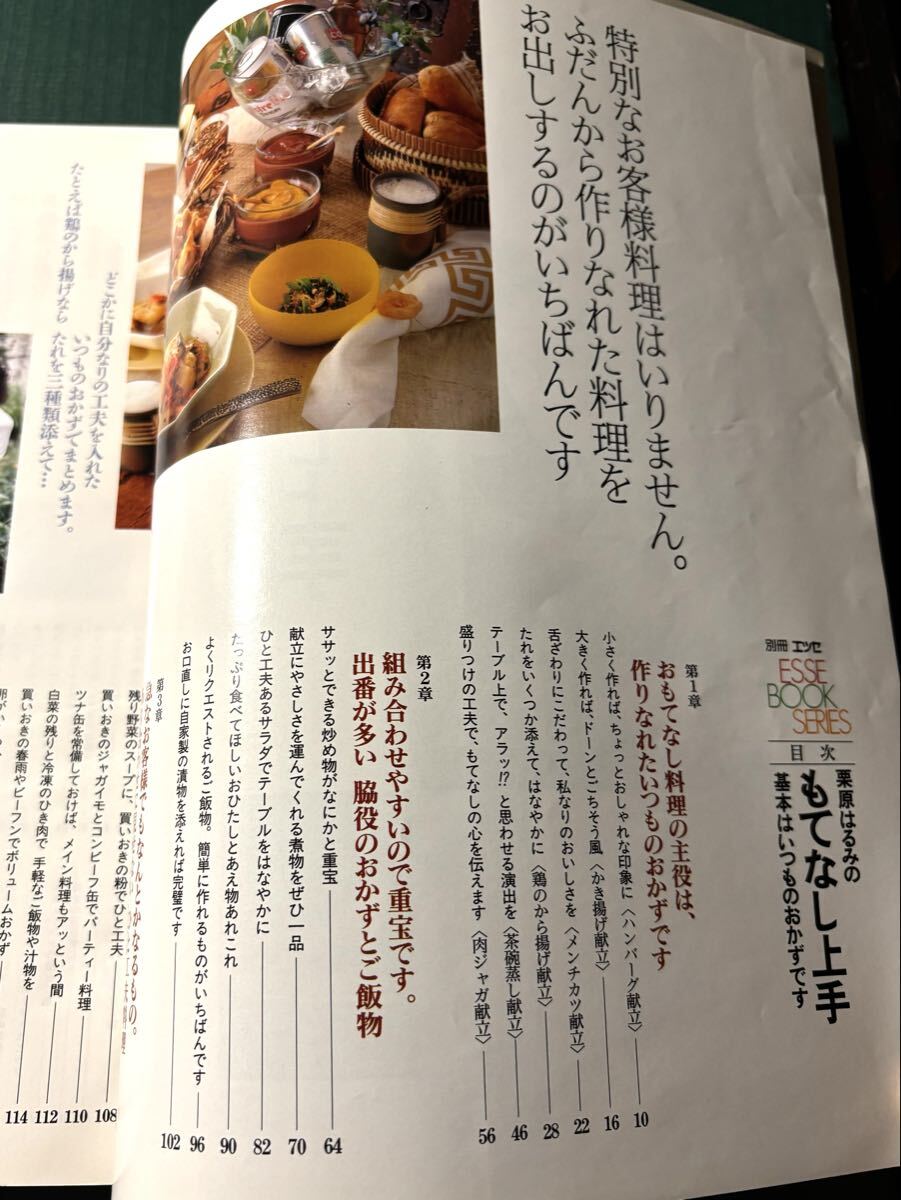 特別なお客様料理はいりません。
ふだんから作りなれた料理を
お出しするのがいちばんです
別冊 エッセ
ESSE
BOOK
SERIES
目次
栗原はるみの
もてなし上手
基本はいつものおかずです
第1章
おもてなし料理の主役は、
作りなれたいつものおかずです
小さく作れば、ちょっとおしゃれな印象に〈ハンバーグ献立〉 10
大きく作れば、ドーンとごちそう風〈かき揚げ献立〉 16
舌ざわりにこだわって、私なりのおいしさを〈メンチカツ献立〉 22
たれをいくつか添えて、はなやかに〈鶏のから揚げ献立〉 28
テーブル上で、アラッ!?と思わせる演出を〈茶碗蒸し献立〉 46
盛りつけの工夫で、もてなしの心を伝えます〈肉ジャガ献立〉 56
第2章
組み合わせやすいので重宝です。
出番が多い 脇役のおかずとご飯物
ササッとできる炒め物がなにかと重宝 64
献立にやさしさを運んでくれる煮物をぜひ一品 70
ひと工夫あるサラダでテーブルをはなやかに 82
たっぷり食べてほしいおひたしとあえ物あれこれ 90
よくリクエストされるご飯物。簡単に作れるものがいちばんです 96
お口直しに自家製の漬物を添えれば完璧です 102
第3章
急なお客様でもなんとかなるもの。
どこかに自分なりの工夫を入れた
いつものおかずでまとめます。
たとえば鶏のから揚げなら
たれを三種類添えて…
残り野菜のスープに、買いおきの粉でひと工夫
買いおきのジャガイモとコンビーフ缶でパーティー料理 108
ツナ缶を常備しておけば、メイン料理もアッという間 110
白菜の残りと冷凍のひき肉で 手軽なご飯物や汁物を 112
買いおきの春雨やビーフンでボリュームおかず 114